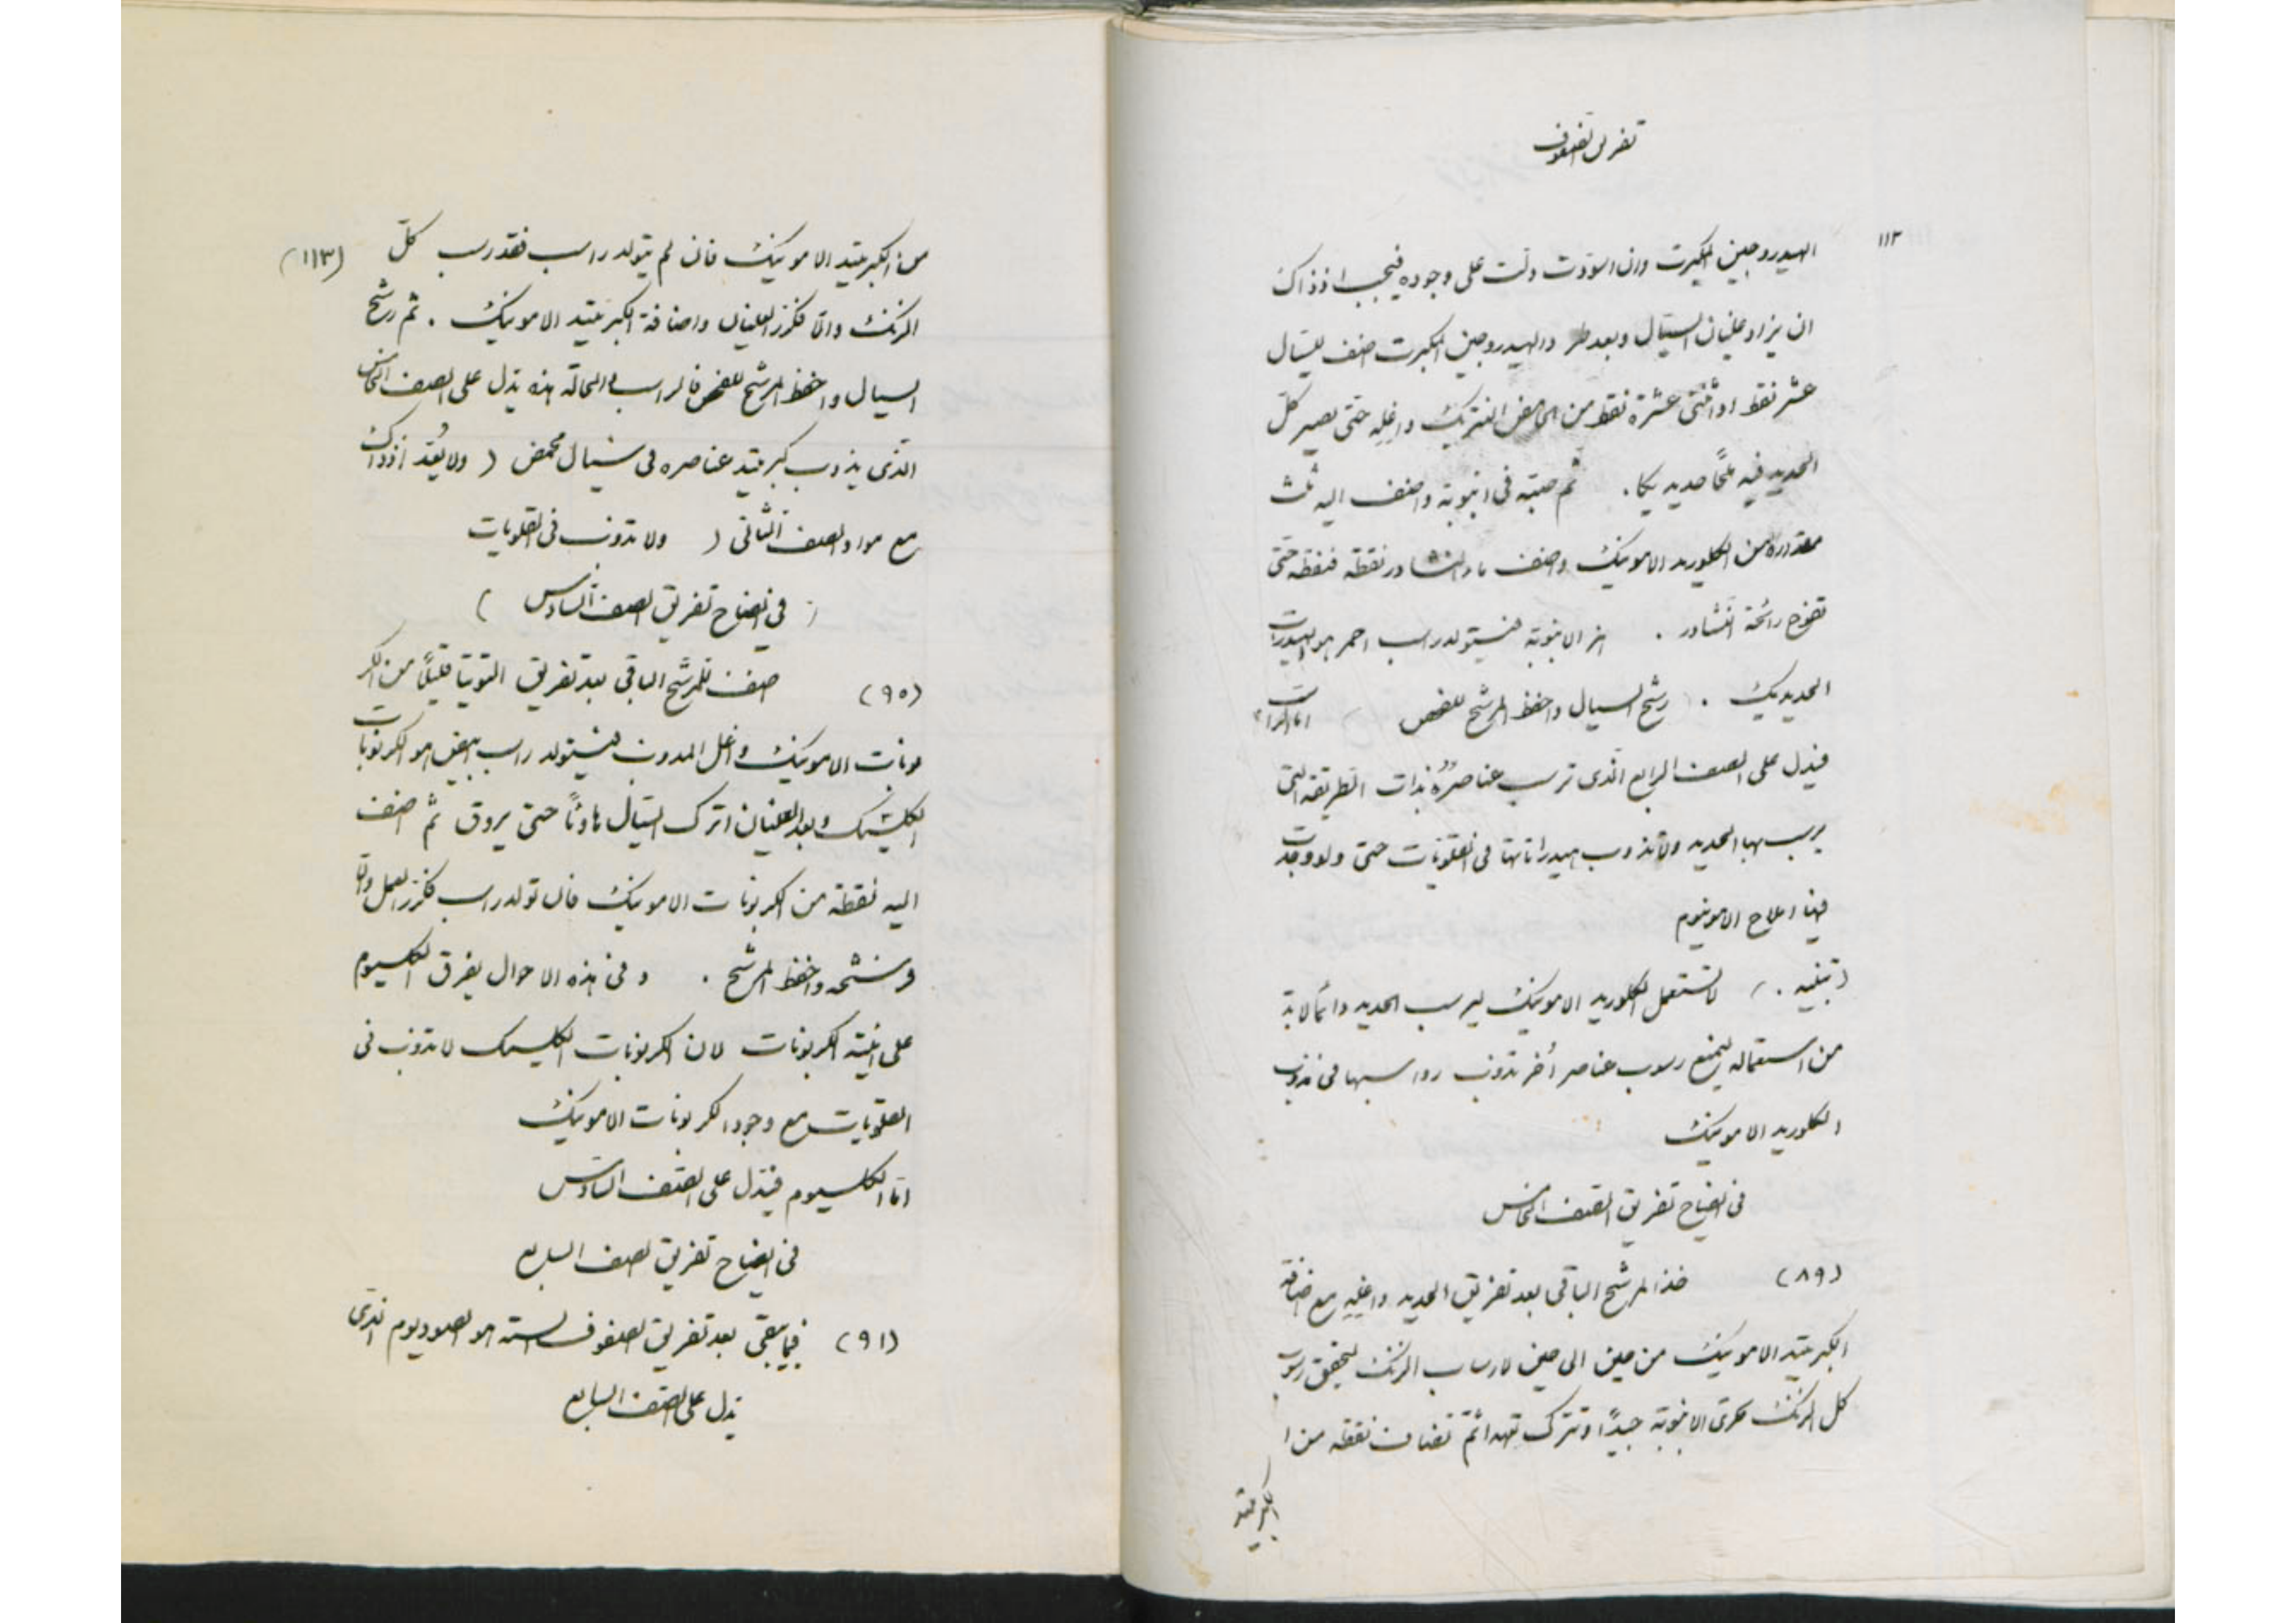 تفريق الصفوف
١١٣
الهيدروجين المكبرت وان اسودت دلت على وجوده فيجب اذ ذاك
ان يزاد غليان السيال وبعد طرد الهيدروجين المكبرت اضف للسيال
عشر نقط او اثنتى عشرة نقط من الحامض النتريك واغله حتى يصير كل
الحديد فيه ملحًا حديديكيا . ثم صبه فى انبوبة واضف اليه ثلث
مقداره من الكلوريد الامونيك واضف ماء النشادر نقطة فنقطة حتى
تفوح رائحة النشادر . هز الانبوبة فيتولد راسب احمر هو الهيدرات
الحديديك . رشح السيال واحفظ المرشح للفحص اما الراسب
فيدل على الصف الرابع الذى ترسب عناصره بذات الطريقة التى
يرسب بها الحديد ولا تذوب هيدراتاتها فى القلويات حتى ولو وجدت
فيها املاح الامونيوم
( تنبيه . ) لا تستعمل الكلوريد الامونيك ليرسب الحديد وانما لا بد
من استعماله ليمنع رسوب عناصر أخر تذوب رواسبها فى مذوب
الكلوريد الامونيك
فى ايضاح تفريق الصف الخامس
(٨٩) خذ المرشح الباقى بعد تفريق الحديد واغليه مع اضافة
الكبريتيد الامونيك من حين الى حين لارساب الزنك ليتحقق رسوب
كل الزنك تحرك الانبوبة جيدًا وتترك تهدا ثم تضاف نقطة من ا
الكبريتيد
من الكبريتيد الامونيك فان لم يتولد راسب فقد رسب كلّ (١١٣)
الزنك والا فكرر الغليان واضافة الكبريتيد الامونيك . ثم رشح
السيال واحفظ المرشح للفحص فالراسب فى الحالة هذه يدل على الصف الخامس
الذى يذوب كبريتيد عناصره فى سيال محمض ( ولا يُعد اذ ذاك
مع مواد الصف الثانى ) ولا تذوب فى القلويات
( فى ايضاح تفريق الصف السادس )
(٩٥) اضف للمرشح الباقى بعد تفريق التوتيا قليلًا من الكر
بونات الامونيك واغل المذوب فيتولد راسب ابيض هو الكربونات
الكلسيك وبعد الغليان اترك السيال هادئًا حتى يروق ثم اضف
اليه نقطة من الكربونات الامونيك فان تولد راسب فكرر العمل والا
فرشحه واحفظ المرشح . وفى هذه الاحوال يفرق الكلسيوم
على هيئة الكربونات لان الكربونات الكلسيك لا تذوب فى
القلويات مع وجود الكربونات الامونيك
اما الكلسيوم فيدل على الصف السادس
فى ايضاح تفريق الصف السابع
(٩١) فيما يبقى بعد تفريق الصفوف الستة هو الصوديوم الذى
يدل على الصف السابع